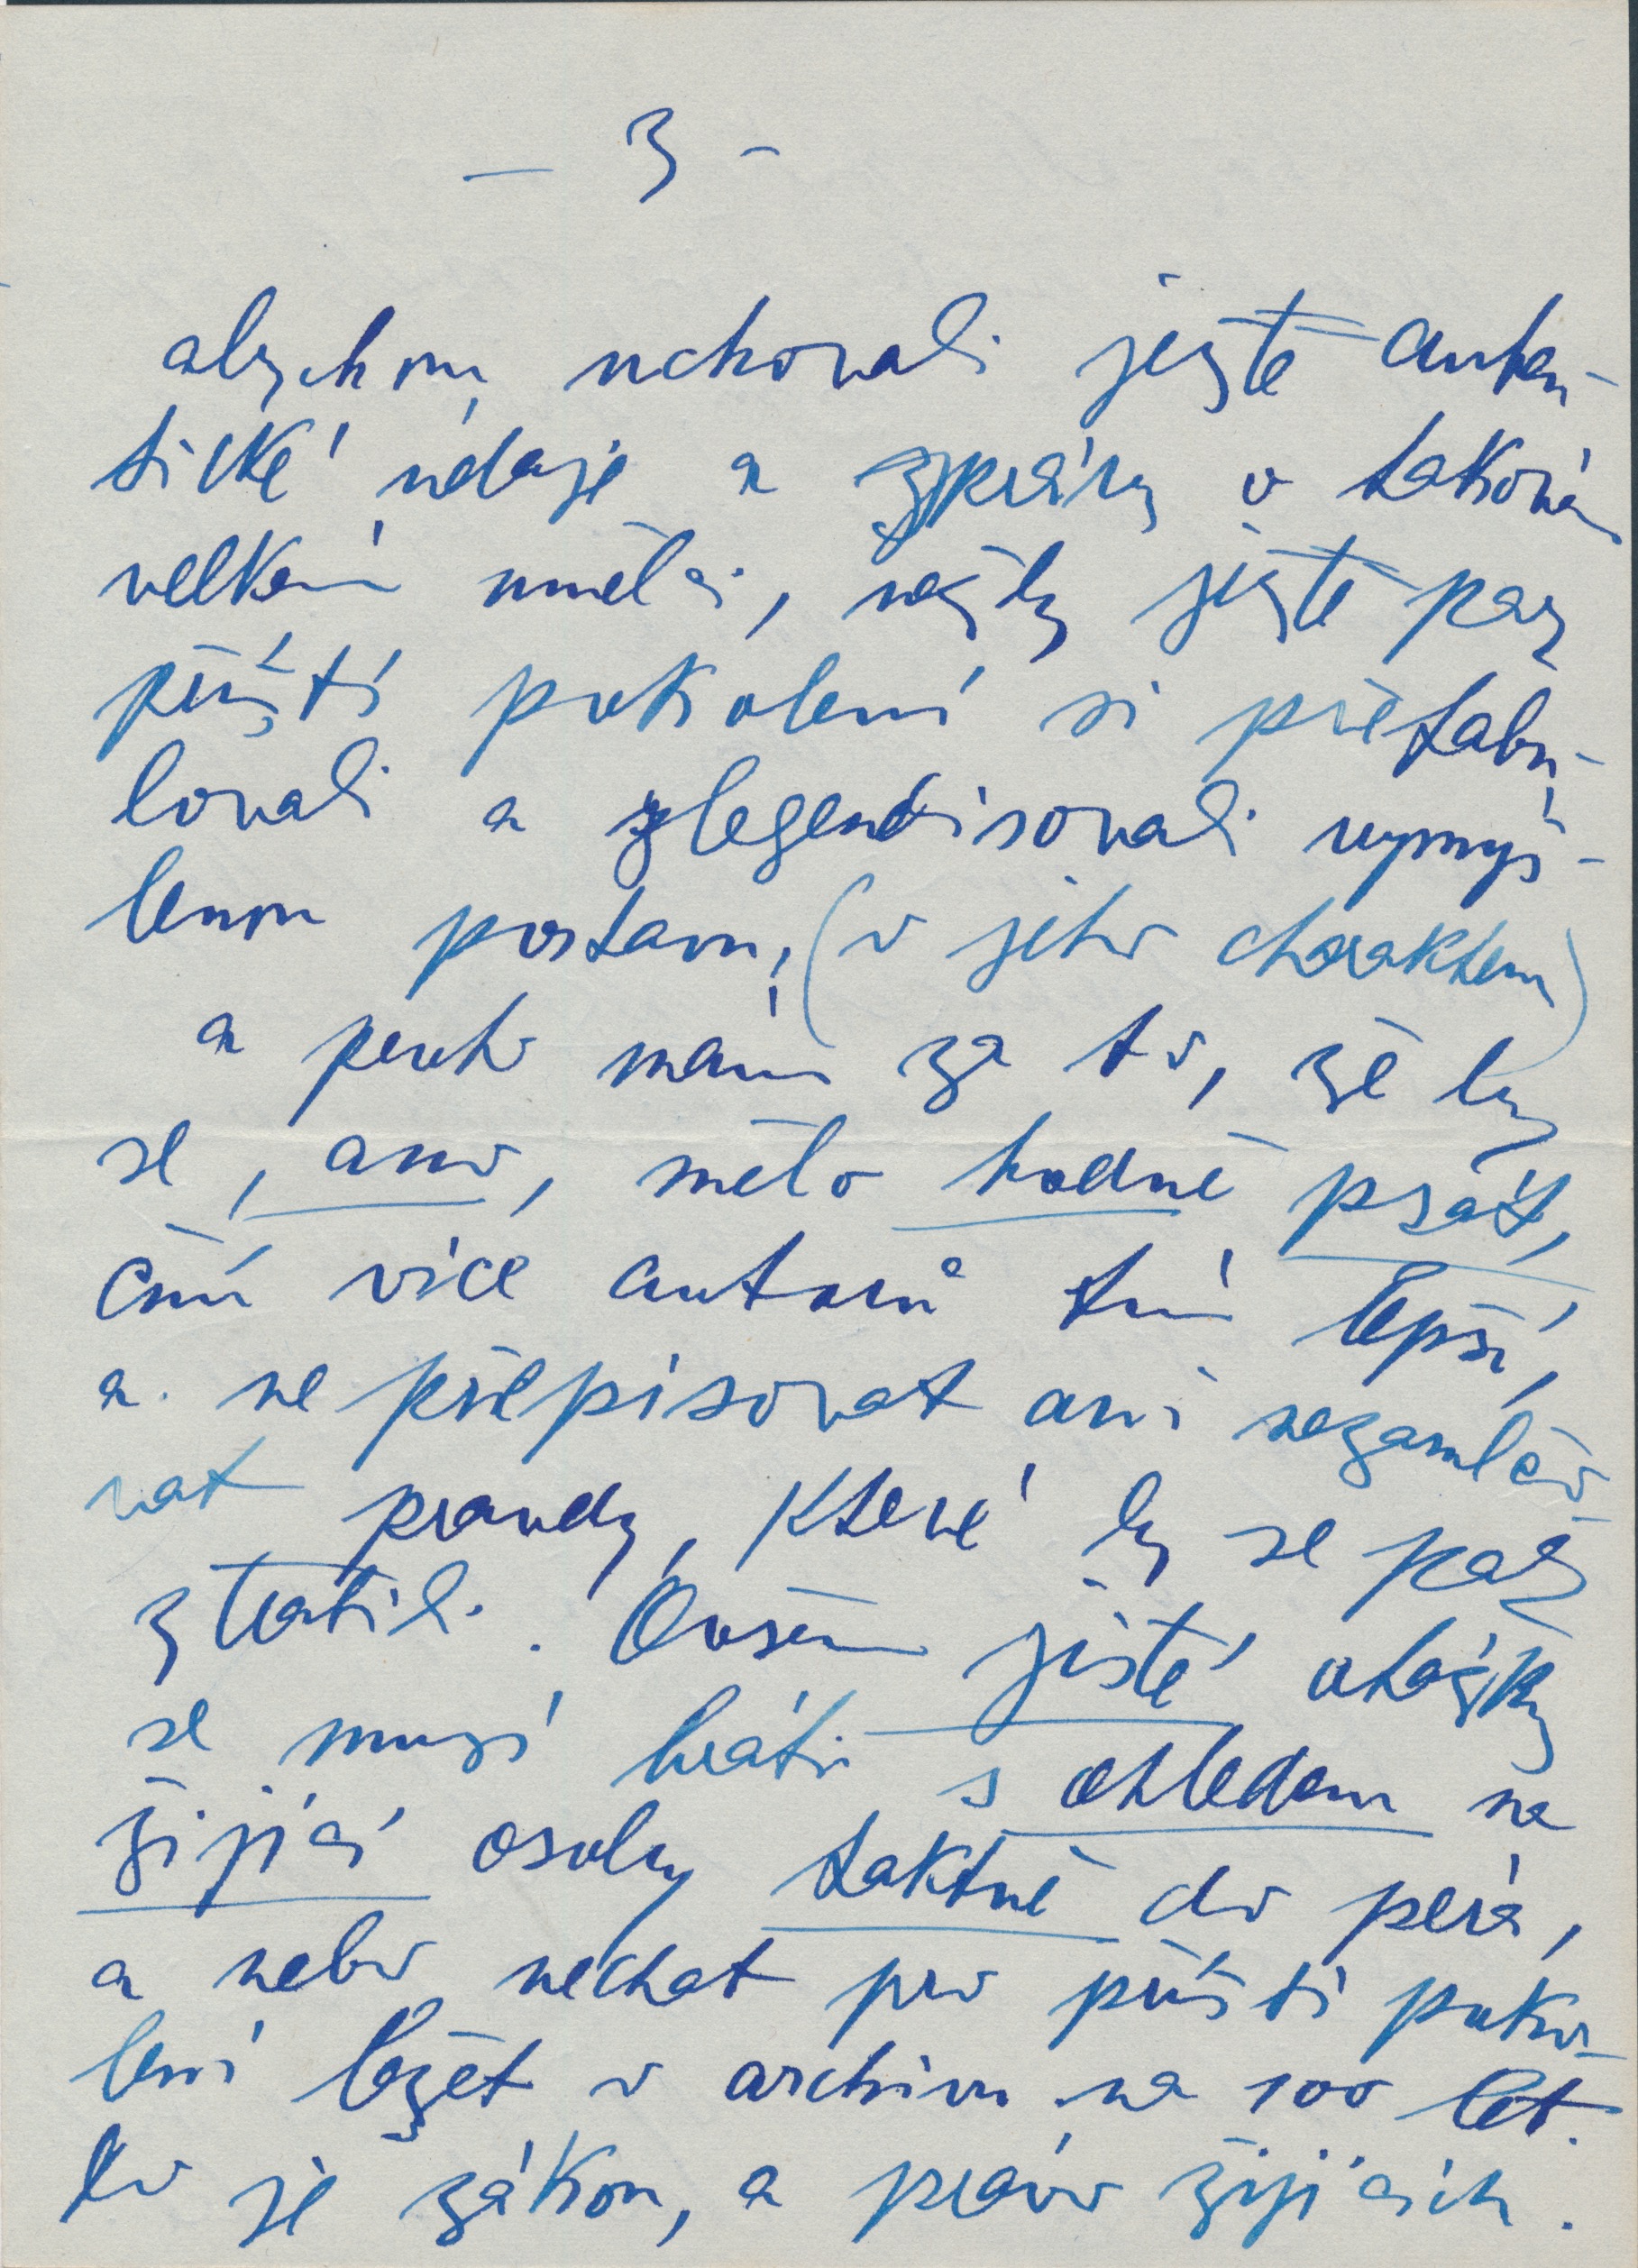 – 3 –
abychom uchovali ještě auten-
tické údaje a zprávy o takovém
velkém umělci, nežby ještě pak
příští pokolení si přefabu-
lovali a zlegendisovali vymyš-
lenou postavu, (v jeho charakteru)
a proto mám za to, že by
se, ano, mělo hodně psát,
čím více autorů tím lepší,
a nepřepisovat ani nezamlčo
vat pravdy, které by se pak
ztratili. Ovšem jisté otázky
se musí bráti s ohledem na
žijící osoby taktně do pera,
a nebo nechat pro příští poko-
lení ležet v archivu na 100 let.
to je zákon, a právo žijících.